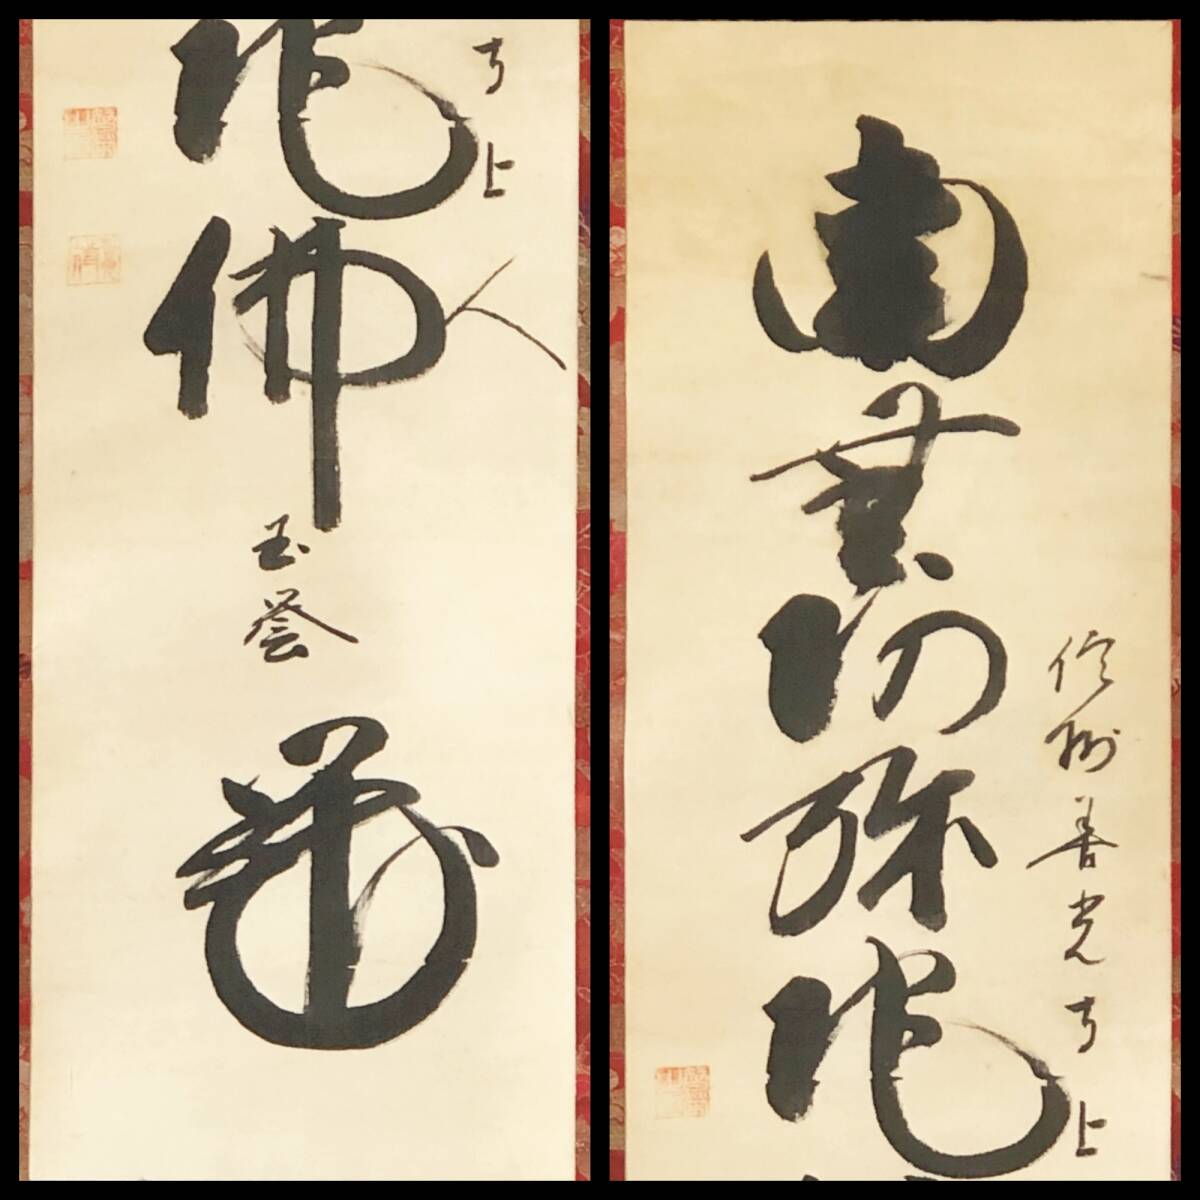 南無阿弥陀
信州善光寺上
陀佛
寺上人
玉誉